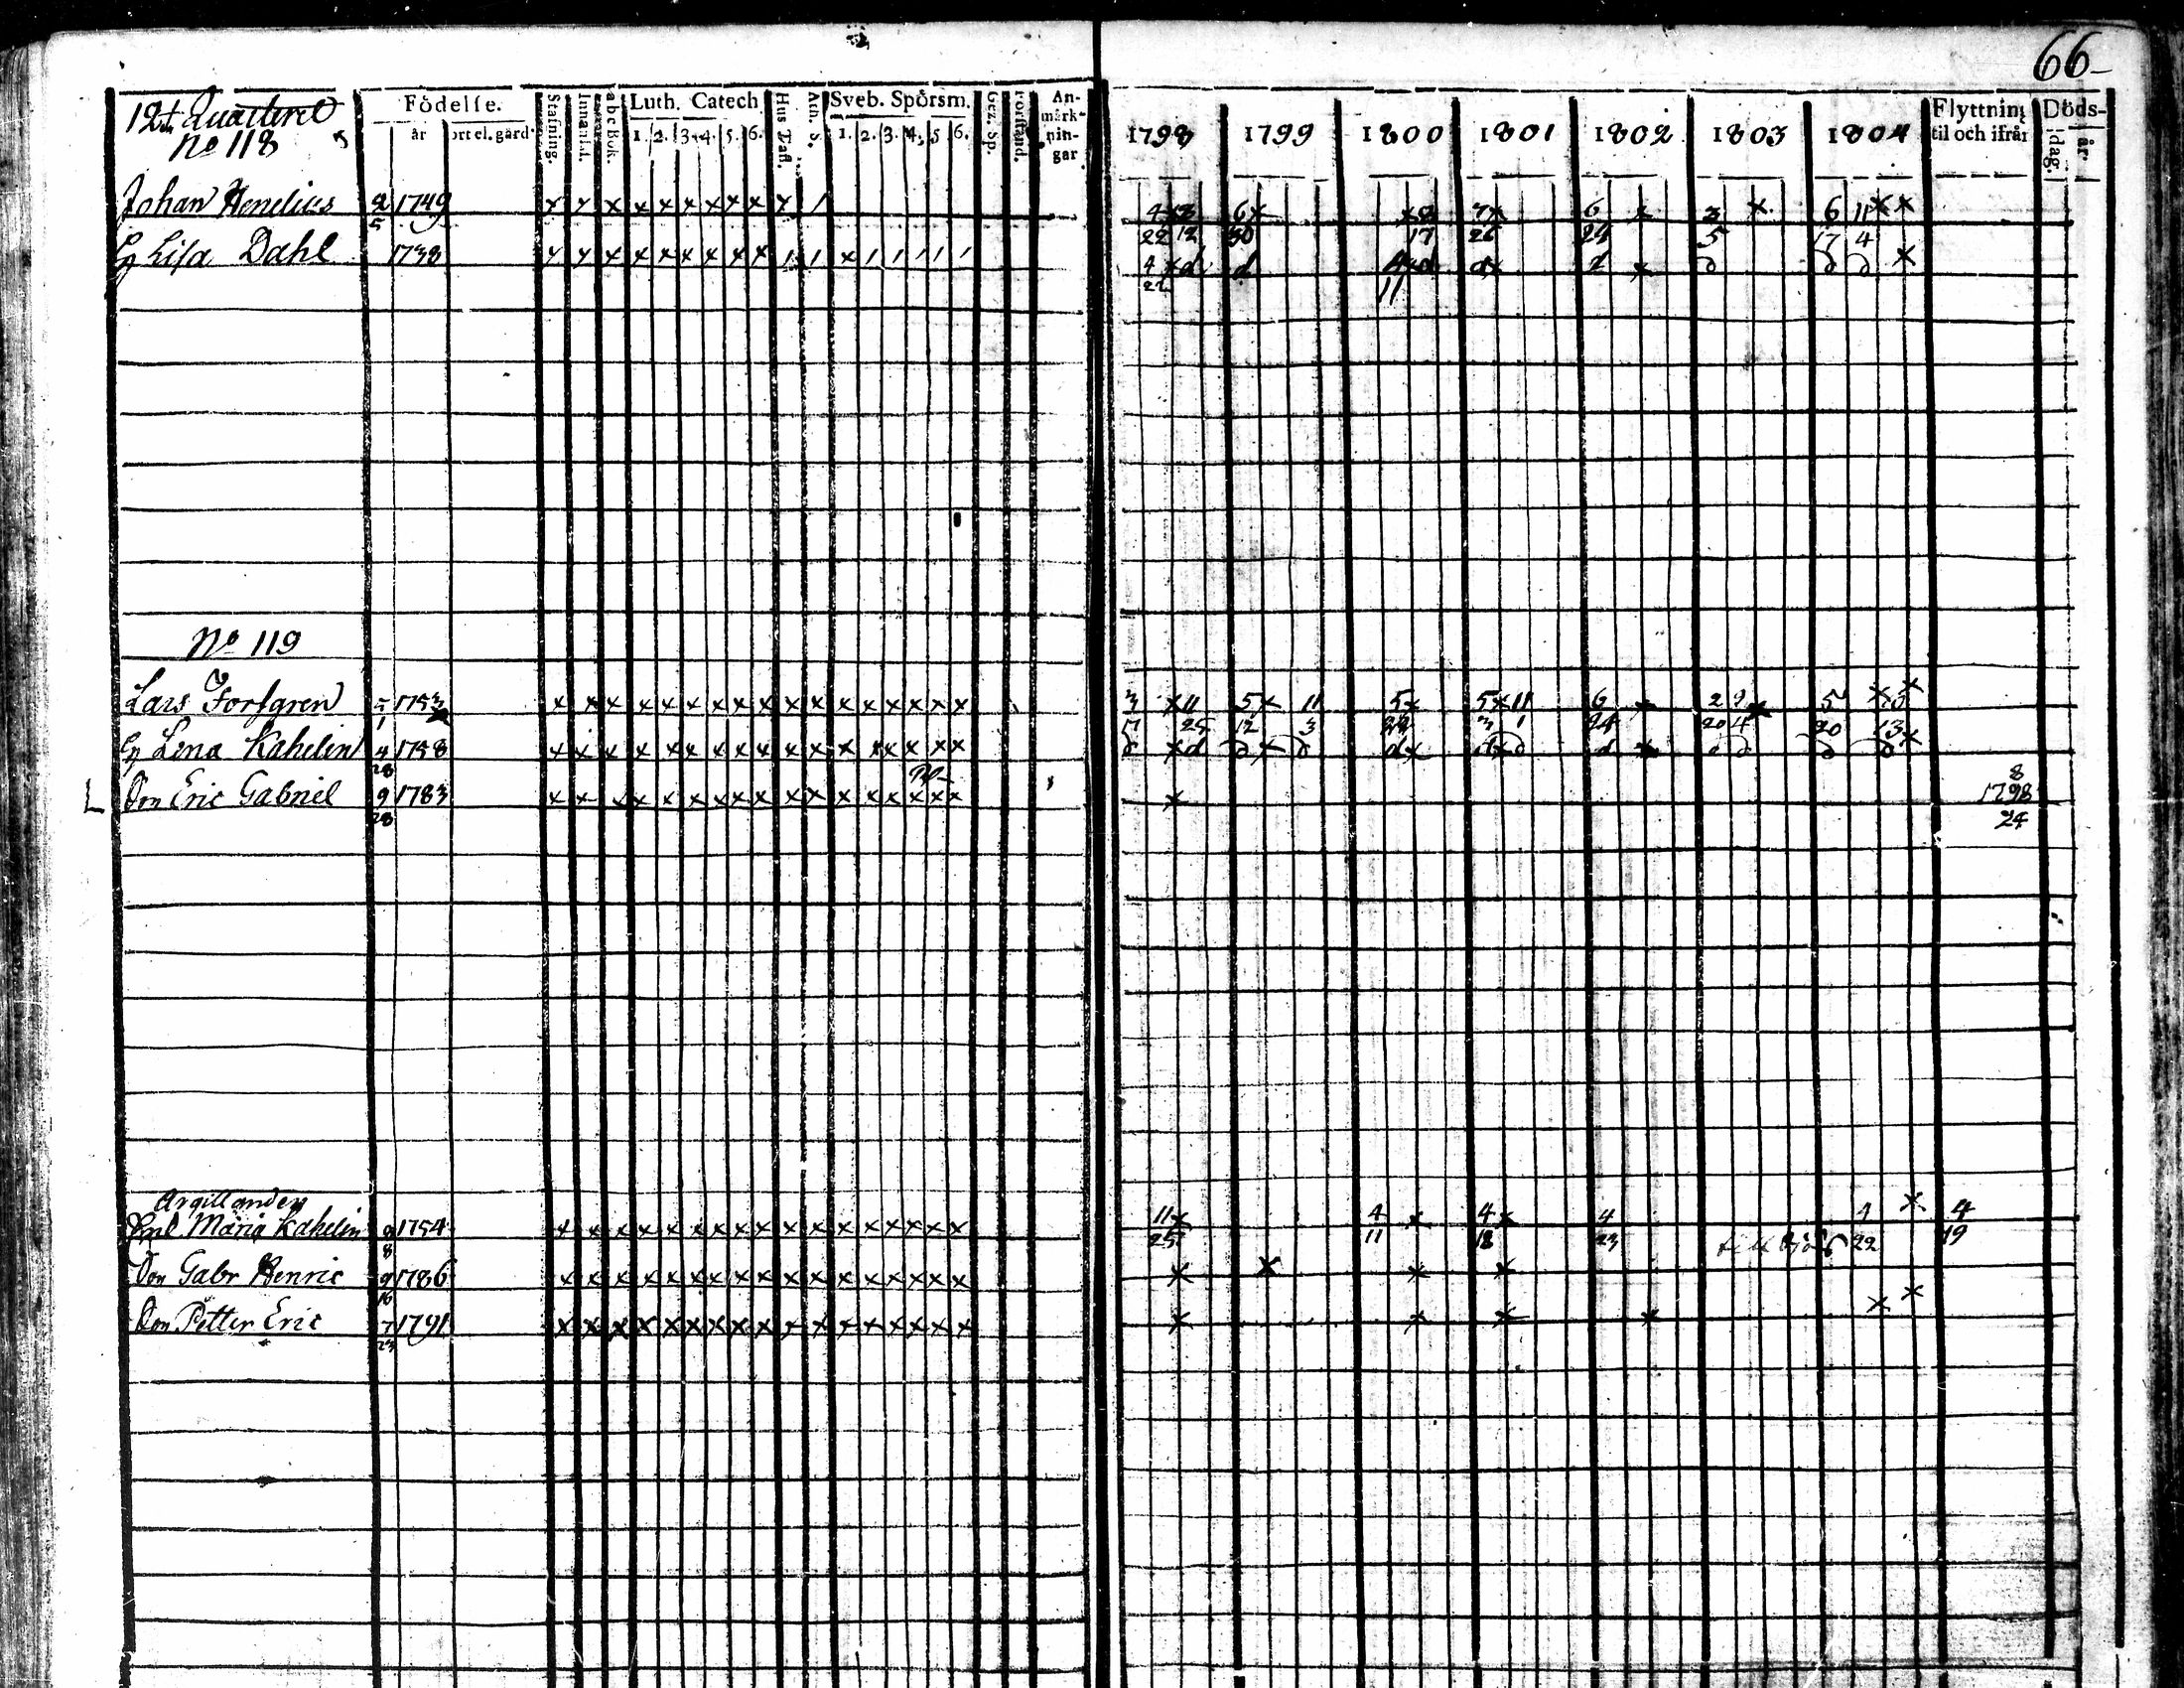 66
12te Quarteret
No 118
Födelse.
år
ort el. gård.
Stafning.
Innanläs.
abc Bok.
Luth. Catech
1. 2. 3. 4. 5. 6.
Hus Tafl.
Ath. S.
Sveb. Spörsm.
1. 2. 3. 4. 5 6.
Gez. Sp.
Förstånd.
An-
märk-
nin-
gar
1798 1799 1800 1801 1802 1803 1804
Flyttning
til och ifrån
Döds-
dag.
år.
Johan Henelius 2 1749 x x x x x x x x x x 1 4 x 8 6 x x 8 7 x 6 x 3 x 6 11 x x
5 22 12 30 17 26 24 5 17 4
Lisa Dahl 1738 x x x x x x x x x 1 1 x 1 1 1 1 1 4 x d d 4 x d d x d x d d d x
22 11
No 119
Lars Forsgren 5 1753 x x x x x x x x x x x x x x x x x 3 x 11 5 x 11 5 x 5 x 11 6 x 2 9 x 5 x x
1 7 25 12 3 22 3 1 24 20 4 20 13
Lena Kahelin 4 1758 x x x x x x x x x x x x x x x x x d x d d x d d x d x d d x d d d d x
28
L Son Eric Gabriel 9 1783 x x x x x x x x x x x x x x x x x x 8 1798
28 24
Argillander
Enl Maria Kahelin 8 1754 x x x x x x x x x x x x x x x x x 11 x 4 x 4 x 4 4 x 4
8 25 11 18 23 till 22 19
Son Gabr Henric 9 1786 x x x x x x x x x x x x x x x x x x x x x
16
Son Petter Eric 7 1791 x x x x x x x x x x x x x x x x x x x x x x x
23